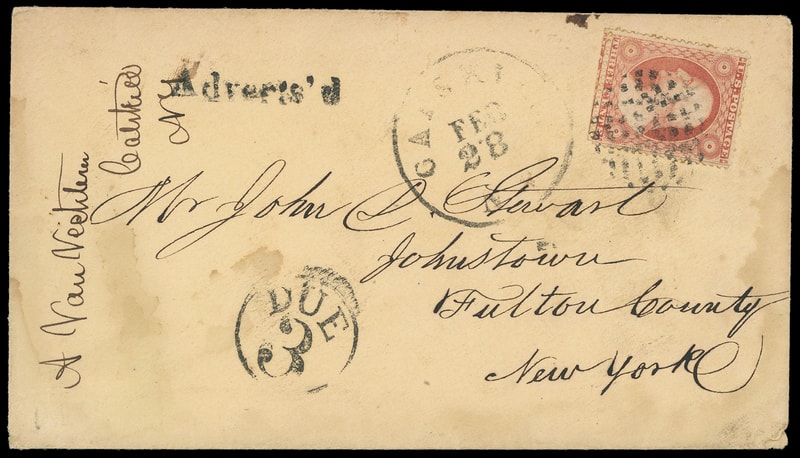 A Van Vechten
Catskill
NY
Advertis'd
FEB
28
U.S. POSTAGE
Mr John S. Stewart
Johnstown
Fulton County
New York
DUE
3